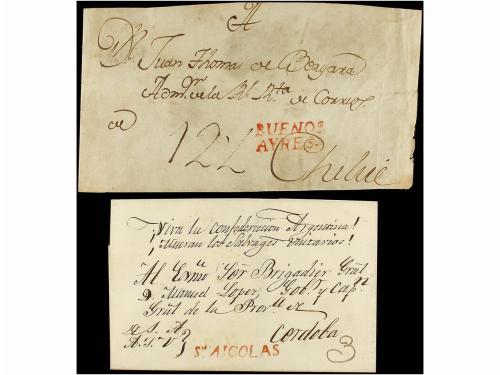 A
Dn. Juan Thomas de Bergara
Admor. de la Rl. Rta. de Correos
de
12½
BUENOS
AYRES
Chile
¡Viva la Confederacion Argentina!
¡Mueran los Salvages Unitarios!
Al Exmo. Sor. Brigadier Gral.
D. Manuel Lopez, Gobor. y Capn.
Gral. de la Prova. de
Cordoba
3
Sn. NICOLAS